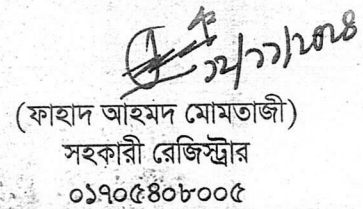 ১২/১১/২০২৪
(ফাহাদ আহমদ মোমতাজী)
সহকারী রেজিস্ট্রার
০১৭০৫৪০৮০০৫